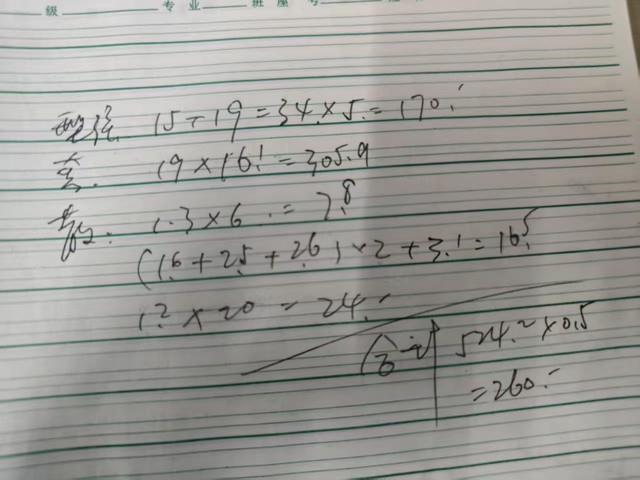 级 专业 班 座号
15+19=34×5=170.
19×16.1=305.9
1.3×6.=7.8
(1.6+2.5+2.6)×2+3.1=16.5
1.2×20=24.
524.2×0.5
=260.